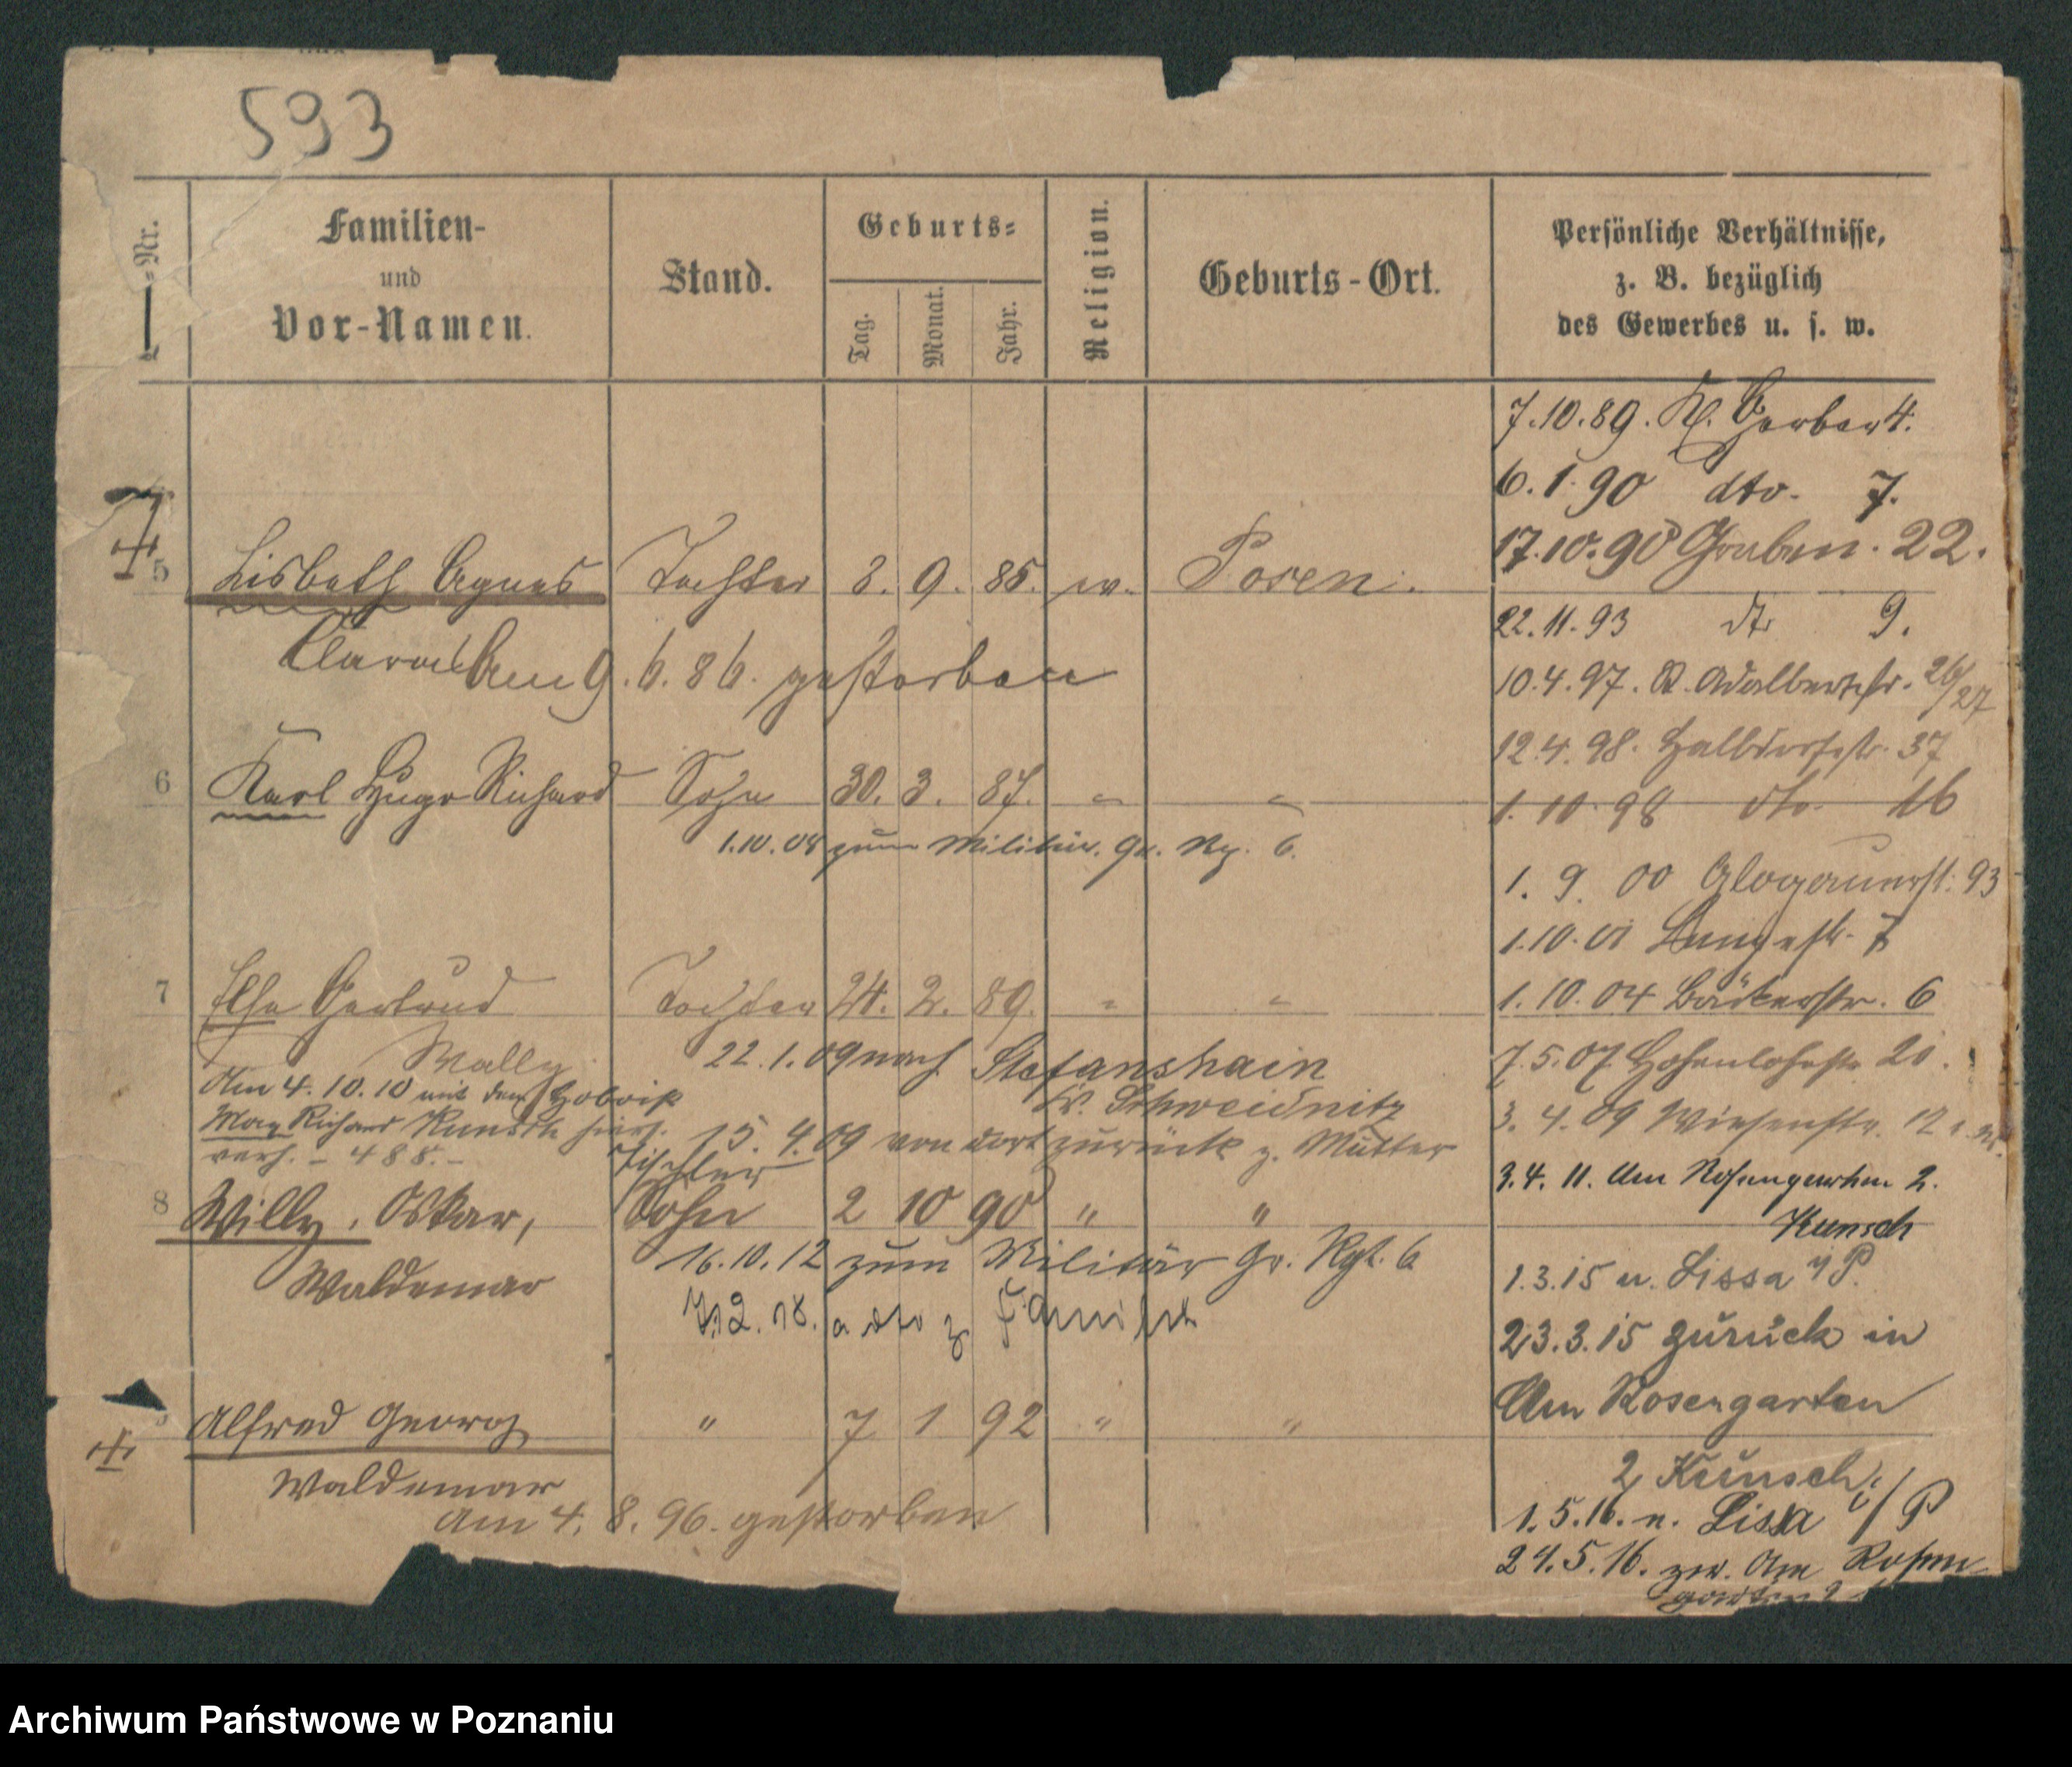 593
=Nr.
Familien-
und
Vor-Namen.
Stand.
Geburts=
Tag.
Monat.
Jahr.
Religion.
Geburts-Ort.
Persönliche Verhältnisse,
z. B. bezüglich
des Gewerbes u. s. w.
7.10.89. Kl. Gerber 4.
6.1.90 dto. 7.
17.10.90 Graben. 22.
5 Lisbeth Agnes Tochter 3. 9. 85. ev. Posen.
22.11.93 dto 9.
Clara Am 9. 6. 86. gestorben
10.4.97. St. Adalbertstr. 26/27
12.4.98. Halbdorfstr. 37
6 Karl Hugo Richard Sohn 30. 3. 87. " "
1.10.98 dto. 16
1.10.08 zum Militär. Gr. Rg. 6.
1. 9. 00 Glogauerstr. 93
1.10.01 Langestr. 7
7 Else Gertrud Tochter 24. 2. 89. " "
1. 10. 04 Bäckerstr. 6
Wally
22.1.09 nach Stefanshain
Kr. Schweidnitz
7.5.07 Hohenlohestr. 20.
Am 4. 10. 10 mit dem
Max Richard Kunsch
verh. - 488. -
15. 4. 09 von dort zurück z. Mutter
3. 4. 09 Wiesenstr. 12
Tischler
3.4. 11. Am Rosengarten 2.
Kunsch
8 Willy, Oskar, Sohn 2 10 90 " "
Waldemar
16.10.12 zum Militär Gr. Rgt. 6
1.3.15 n. Lissa i/P.
23.3.15 zurück in
Am Rosengarten
2 Kunsch
Alfred Georg " 7 1 92 " "
Waldemar
Am 4. 8. 96. gestorben
1.5.16. n. Lissa i/P
24.5.16. zur. Am Rosen-
garten 2
Archiwum Państwowe w Poznaniu